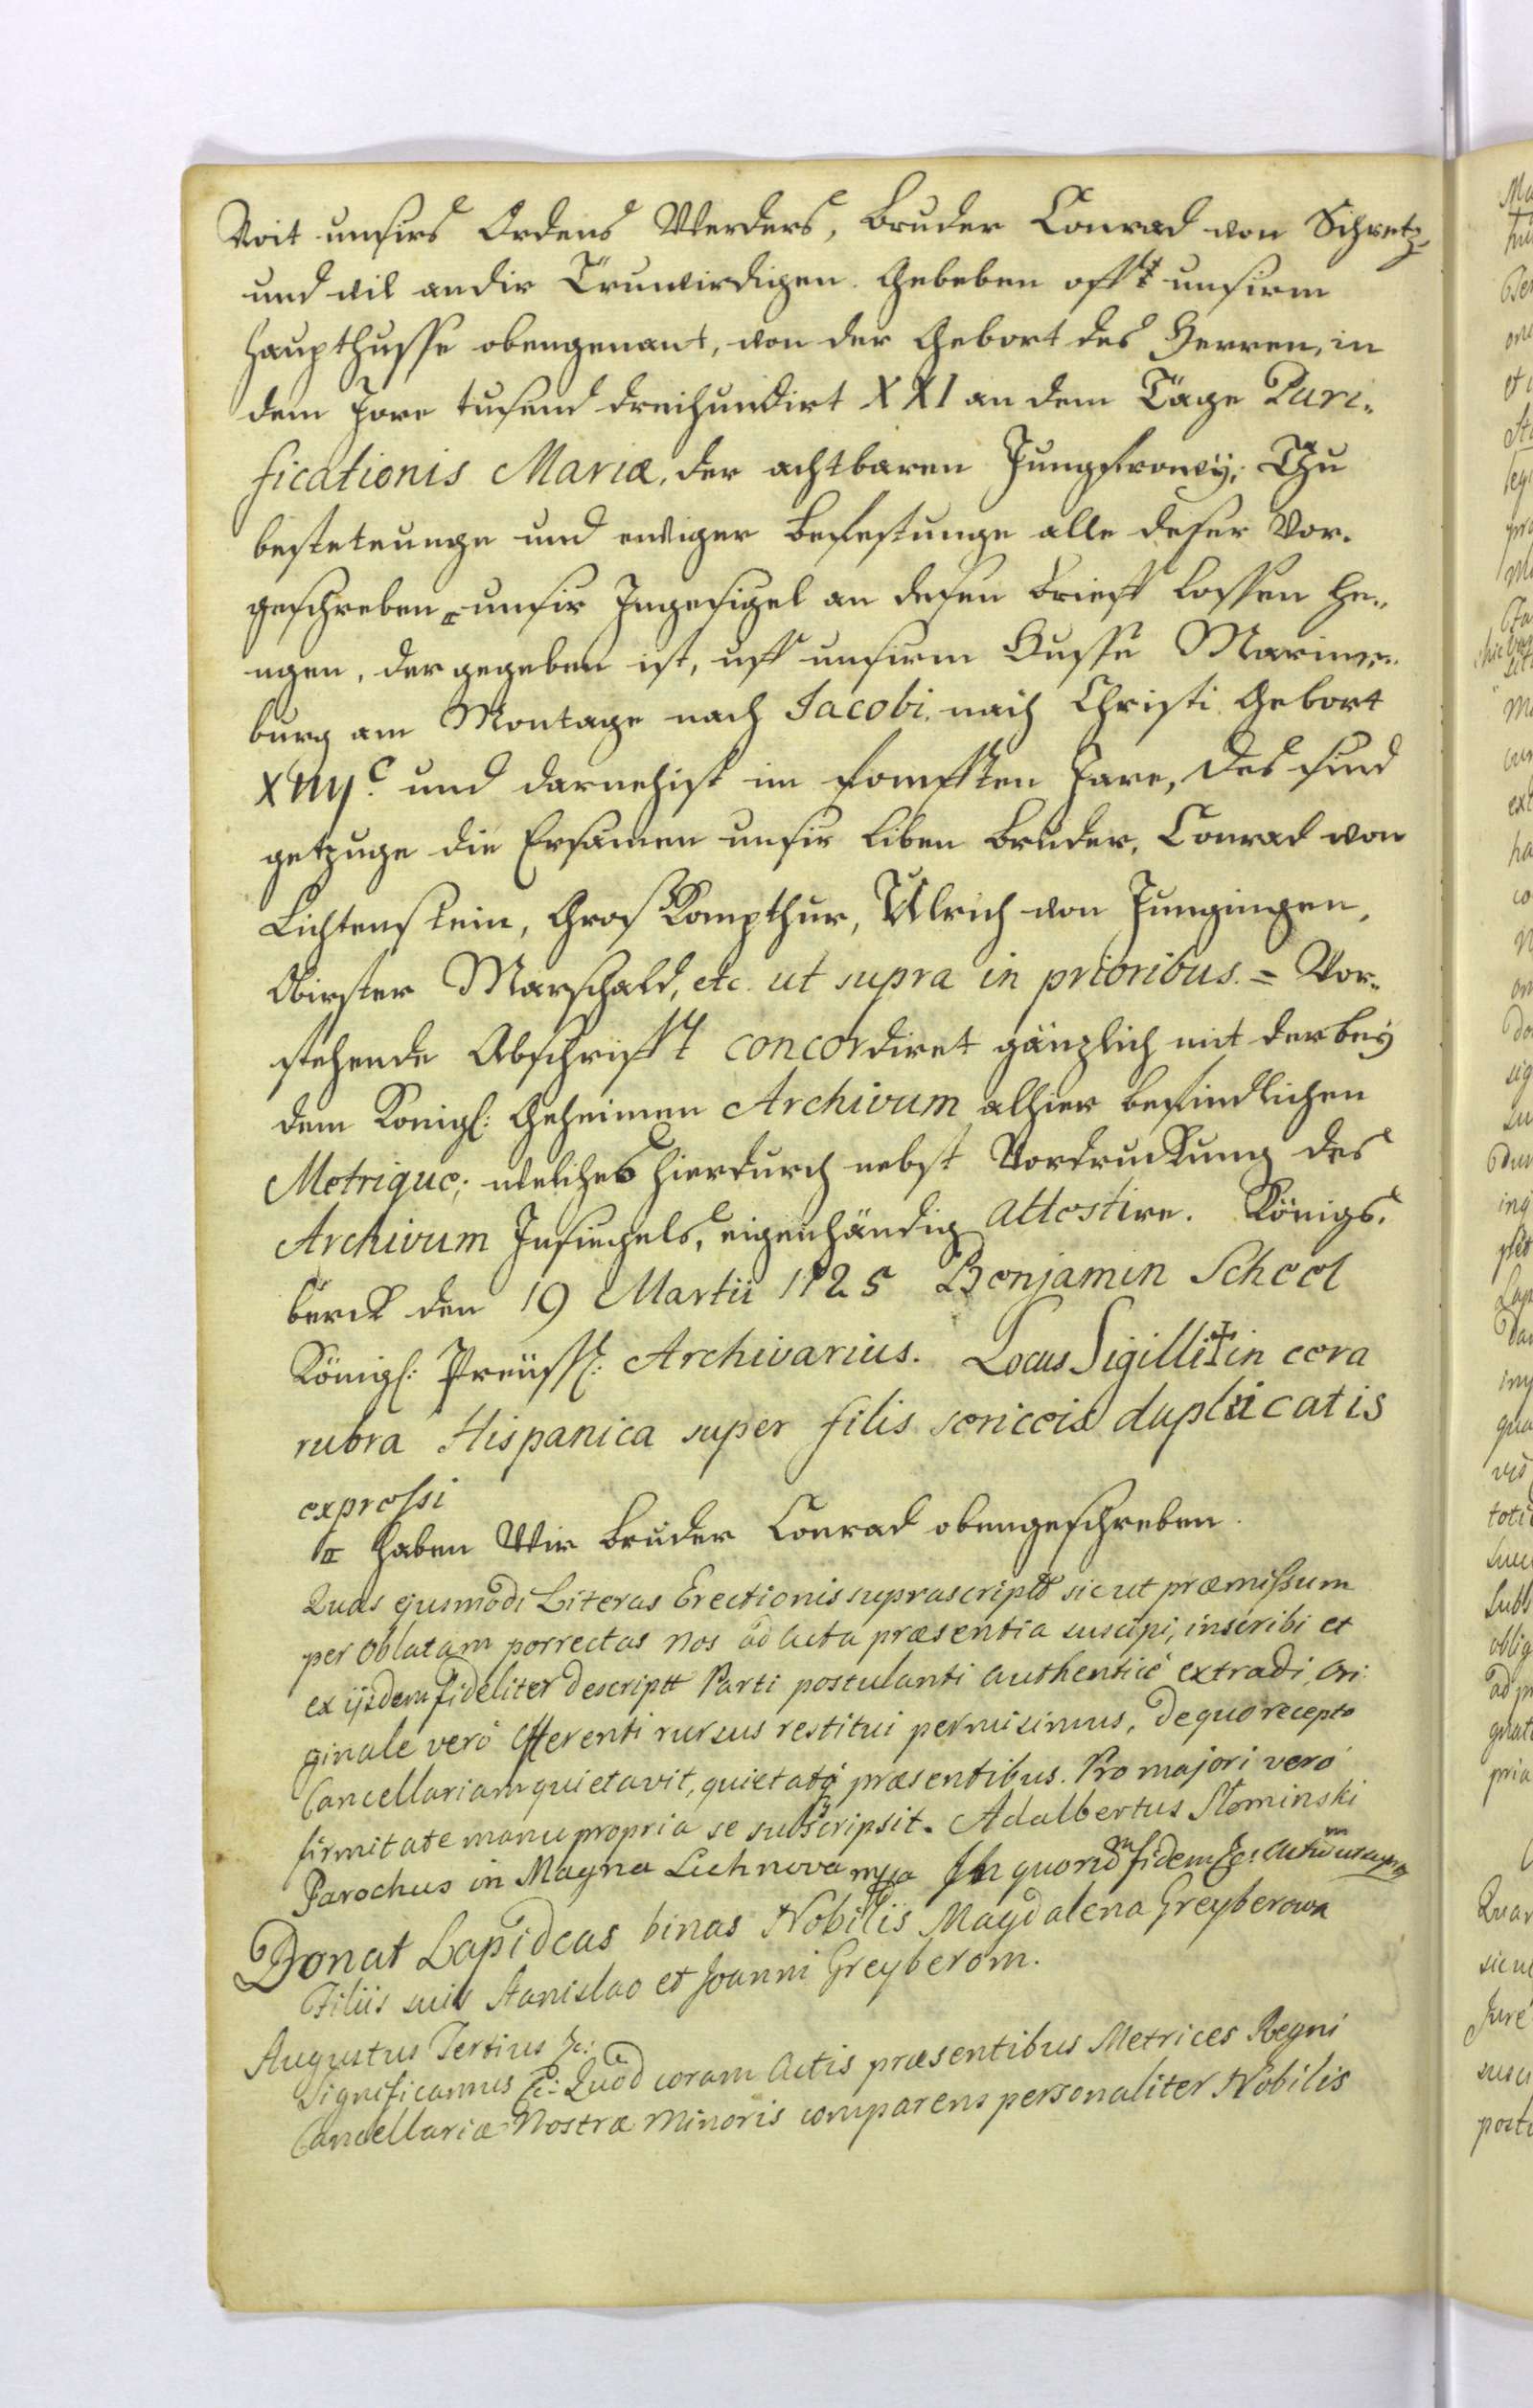 Voit unsirs Ordens Werders, Bruder Conrad von Schretz,
und vil andir Truwirdigen. Gebeben offt unsirm
Haupthusse obengenant, von der Gebort des Herren, in
dem Jore tusend dreihundirt XXI an dem Tage Puri-
ficationis Mariæ, der achtbaren Jungfrowy; Thu
besteteunge und ewiger Befestunge alle deser Vor-
geschreben unsir Ingesigel an desen Brieff lossen he-
ngen, der gegeben ist, uff unsirm Husse Marien-
burg am Montage nach Jacobi, nach Christi Gebort
XIIIIc und darnehist im fomfften Jare, des sind
getzuge die Ersamen unsir liben Bruder, Conrad von
Lichtenstein, Gros Kompthur, Ulrich von Jungingen,
Obirster Marschald, etc. ut supra in prioribus. = Vor-
stehende Abschrifft concordiret gänzlich mit der bey
dem Königl: Geheimen Archivum alhier befindlichen
Metrique; welches hierdurch nebst Vordruckung des
Archivum Insiegels, eigenhändig attestire. Königs-
berck den 19 Martii 1725 Benjamin Scheel
Königl: Preüssl: Archivarius. Locus Sigilli in cera
rubra Hispanica super filis sericeis duplicatis
expressi
haben Wir Bruder Conrad obengeschreben.
Quas ejusmodi Literas Erectionis suprascriptas sicut præmissum
per Oblatam porrectas Nos ad Acta præsentia suscipi, inscribi et
ex ijsdem fideliter descriptt Parti postulanti authenticè extradi, Ori-
ginale verò Offerenti rursus restitui permisimus, de quo recepto
Cancellariam quietavit, quietatq præsentibus. Pro majori verò
firmitate manu propria se subscripsit. Adalbertus Słominski
Parochus in Magna Lichnova mpa In quorū fidem &c: Actū ut supra
Donat Lapideas binas Nobilis Magdalena Greyberowa
Filiis suis Stanislao et Joanni Greyberom.
Augustus Tertius &c:
Significamus &c: Quod coram Actis præsentibus Metrices Regni
Cancellariæ Nostræ Minoris comparens personaliter Nobilis